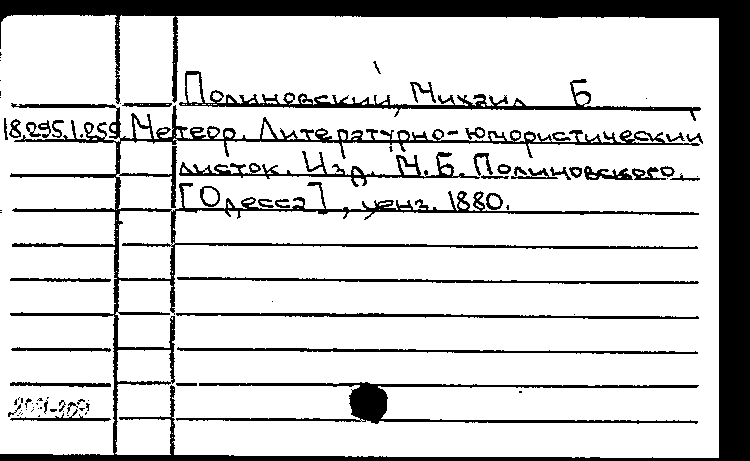 Полиновский, Михаил Б
18.295.1.259 Метеор. Литературно-юмористический
листок. Изд. М.Б. Полиновского.
[Одесса], ценз. 1880.